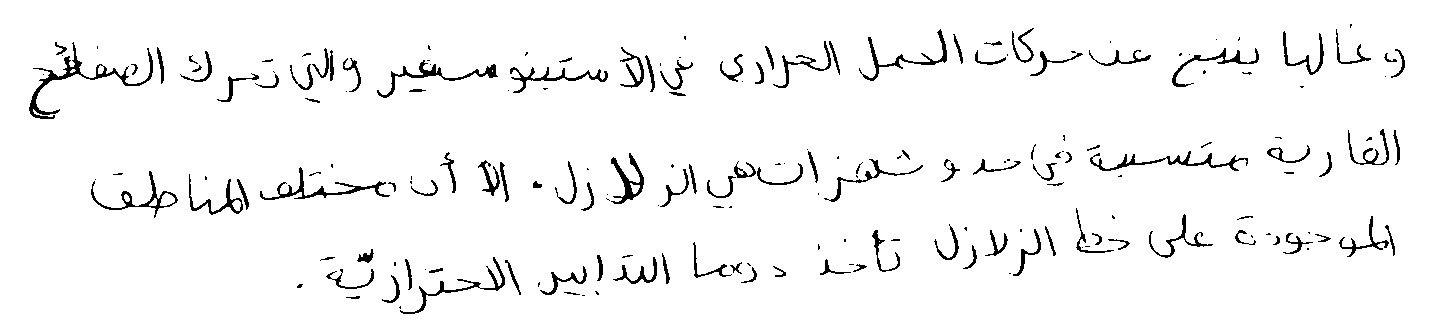 وغالبا ينتج عن حركات الحمل الحراري في الأستينوسفير والتي تحرك الصفائح
القارية متسببة في حدوث هزات هي الزلازل. الا أن مختلف المناطق
الموجودة على خط الزلازل تأخذ دوما التدابير الاحترازيّة.